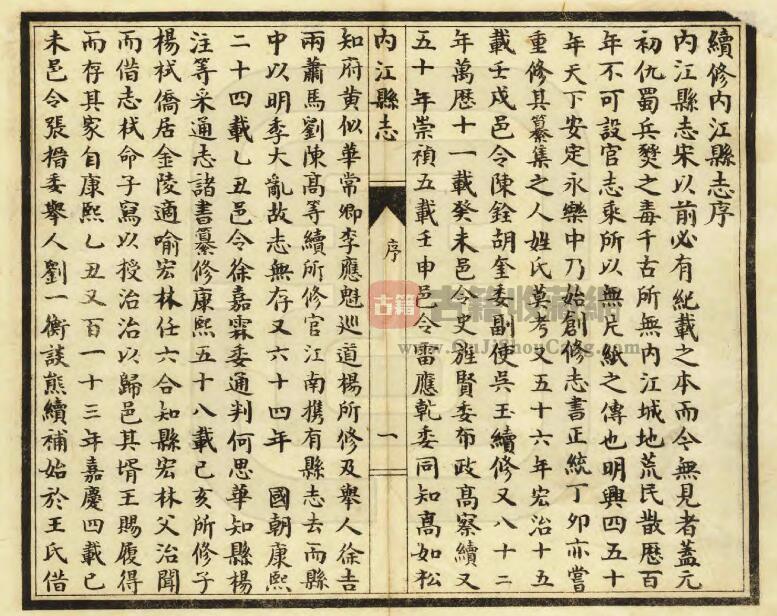 續修內江縣志序
內江縣志宋以前必有紀載之本而今無見者蓋元
初仇蜀兵燹之毒千古所無內江城地荒民散歷百
年不可設官志乘所以無片紙之傳也明興四五十
年天下安定永樂中乃始創修志書正統丁卯亦嘗
重修其纂集之人姓氏莫考又五十六年宏治十五
載壬戌邑令陳銓胡奎委副使吳玉續修又八十二
年萬歷十一載癸未邑令史旌賢委布政高察續又
五十年崇禎五載壬申邑令雷應乾委同知高如松
內江縣志
序
一
知府黃似華常卿李應魁巡道楊所修及舉人徐吉
兩蕭馬劉陳高等續所修官江南攜有縣志去而縣
中以明季大亂故志無存又六十四年 國朝康熙
二十四載乙丑邑令徐嘉霖委通判何思華知縣楊
注等采通志諸書纂修康熙五十八載己亥所修子
楊栻僑居金陵適喻宏林任六合知縣宏林父治聞
而借志栻命子寫以授治治以歸邑其壻王賜履得
而存其家自康熙乙丑又百一十三年嘉慶四載己
未邑令張搢委舉人劉一衡談熊續補始於王氏借
古籍
古籍收藏網
www.GuJiShouCang.com